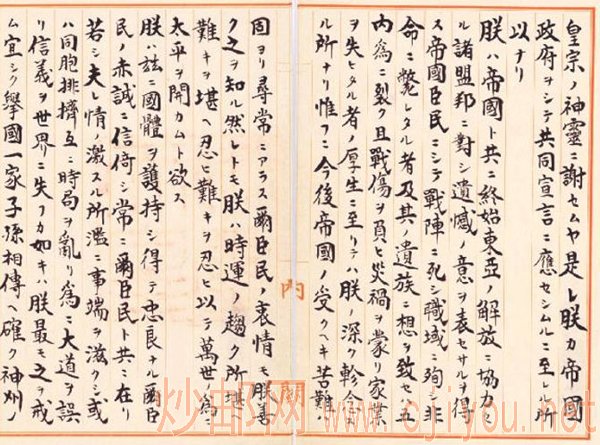 皇宗ノ神靈ニ謝セムヤ是レ朕カ帝國
政府ヲシテ共同宣言ニ應セシムルニ至レル所
以ナリ
朕ハ帝國ト共ニ終始東亞ノ解放ニ協力セ
ル諸盟邦ニ對シ遺憾ノ意ヲ表セサルヲ得
ス帝國臣民ニシテ戰陣ニ死シ職域ニ殉シ非
命ニ斃レタル者及其ノ遺族ニ想ヲ致セハ五
内爲ニ裂ク且戰傷ヲ負ヒ災禍ヲ蒙リ家業
ヲ失ヒタル者ノ厚生ニ至リテハ朕ノ深ク軫念ス
ル所ナリ惟フニ今後帝國ノ受クヘキ苦難
内閣
固ヨリ尋常ニアラス爾臣民ノ衷情モ朕善
ク之ヲ知ル然レトモ朕ハ時運ノ趨ク所堪ヘ
難キヲ堪ヘ忍ヒ難キヲ忍ヒ以テ萬世ノ爲ニ
太平ヲ開カムト欲ス
朕ハ茲ニ國體ヲ護持シ得テ忠良ナル爾臣
民ノ赤誠ニ信倚シ常ニ爾臣民ト共ニ在リ
若シ夫レ情ノ激スル所濫ニ事端ヲ滋クシ或
ハ同胞排擠互ニ時局ヲ亂リ爲ニ大道ヲ誤
リ信義ヲ世界ニ失フカ如キハ朕最モ之ヲ戒
ム宜シク擧國一家子孫相傳ヘ確ク神州ノ
炒邮网 www.cjiyou.net